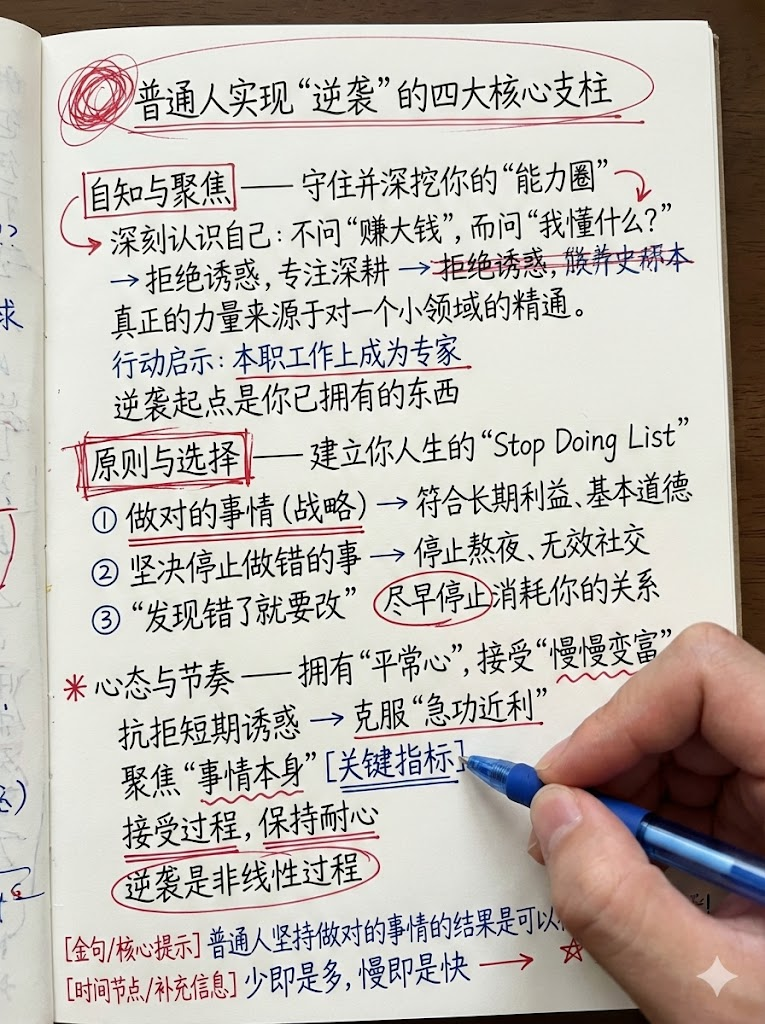 普通人实现“逆袭”的四大核心支柱
自知与聚焦 —— 守住并深挖你的“能力圈”
深刻认识自己：不问“赚大钱”，而问“我懂什么？”
→ 拒绝诱惑，专注深耕 → 拒绝诱惑，
真正的力量来源于对一个小领域的精通。
行动启示：本职工作上成为专家
逆袭起点是你已拥有的东西
原则与选择 —— 建立你人生的“Stop Doing List”
① 做对的事情（战略）→ 符合长期利益、基本道德
② 坚决停止做错的事 → 停止熬夜、无效社交
③ “发现错了就要改” 尽早停止消耗你的关系
* 心态与节奏 —— 拥有“平常心”，接受“慢慢变富”
抗拒短期诱惑 → 克服“急功近利”
聚焦“事情本身”[关键指标]
接受过程，保持耐心
逆袭是非线性过程
[金句/核心提示] 普通人坚持做对的事情的结果是可以
[时间节点/补充信息] 少即是多，慢即是快 → ☆